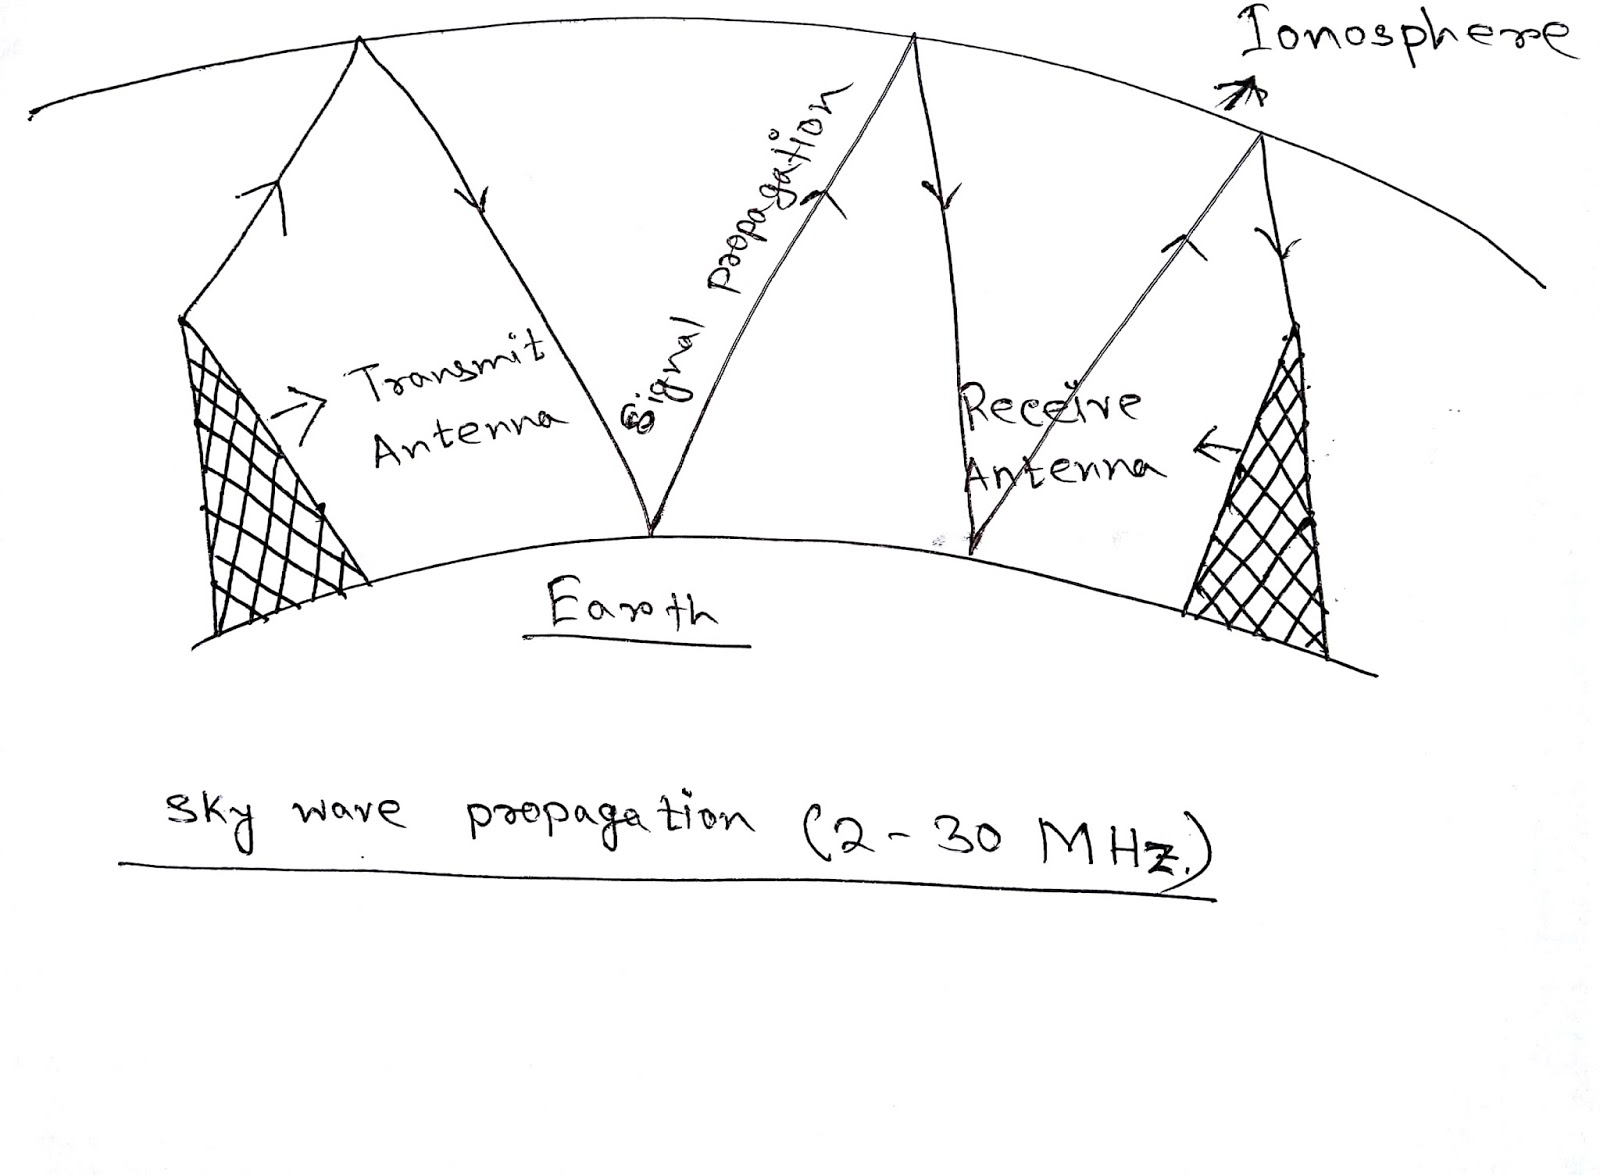 Ionosphere
Signal propagation
Transmit
Antenna
Receive
Antenna
Earth
Sky wave propagation (2-30 MHz.)